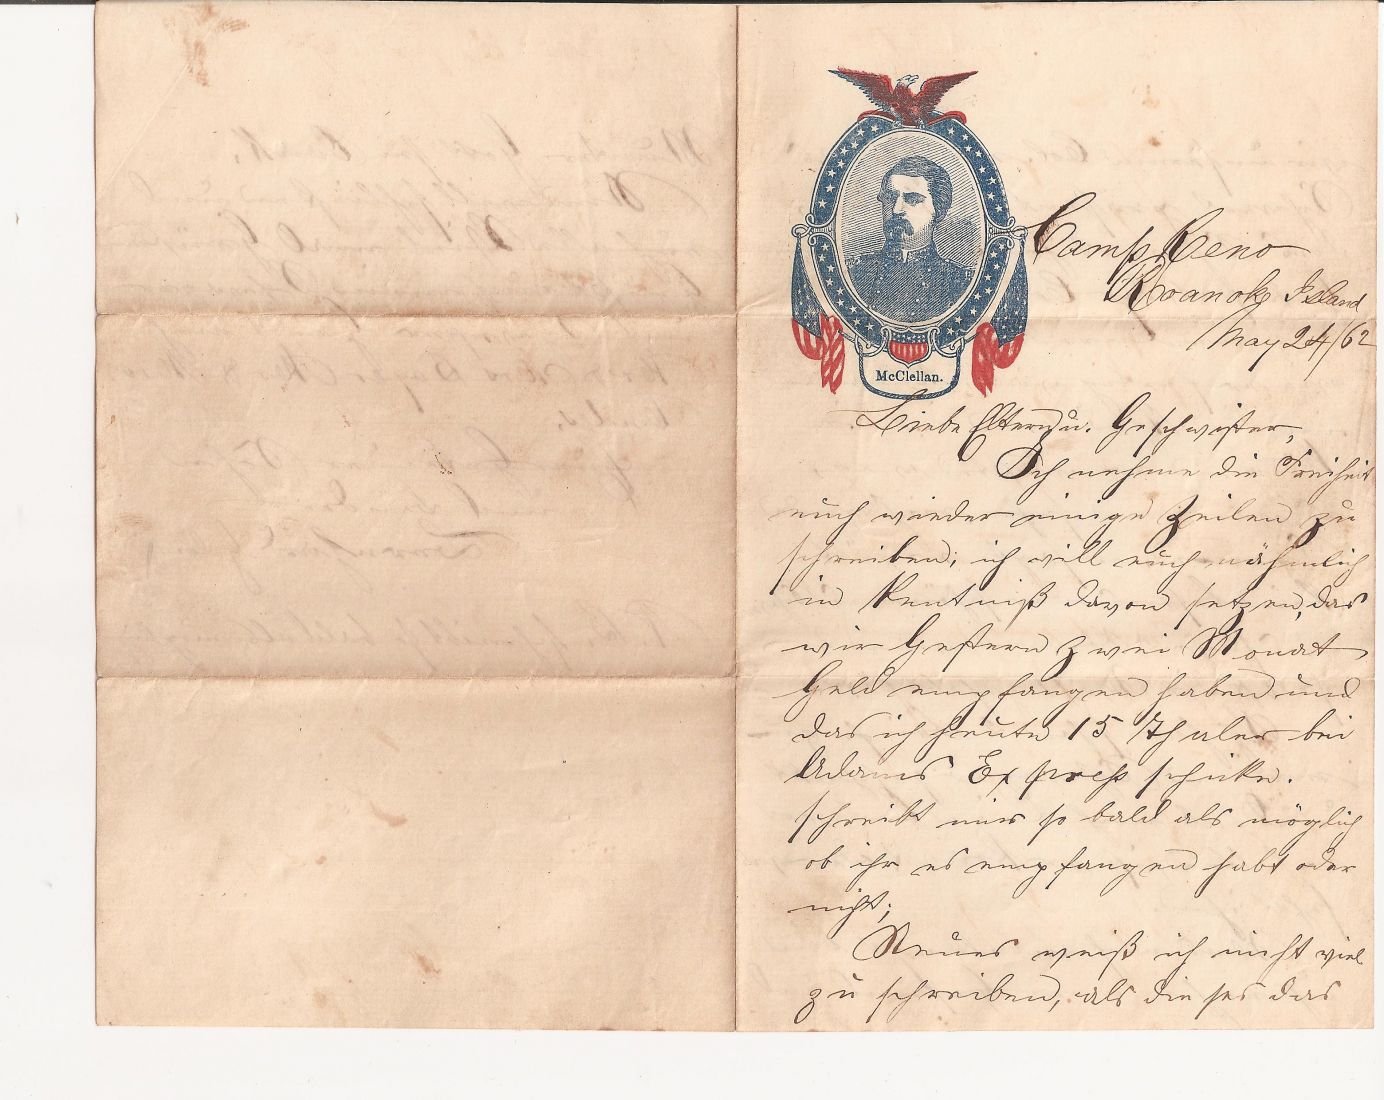 McClellan.
Camp Reno
Roanoke Island
May 24/62
Liebe Eltern u. Geschwister,
Ich nehme die Freiheit
euch wieder einige Zeilen zu
schreiben; ich will euch nähmlich
in Kentniß davon setzen, das
wir Gestern zwei Monat
Geld empfangen haben und
das ich heute 15 Thaler bei
Adams Express schicke.
schreibt mir so bald als möglich
ob ihr es empfangen habt oder
nicht;
Neues weiß ich nicht viel
zu schreiben, als dieses das